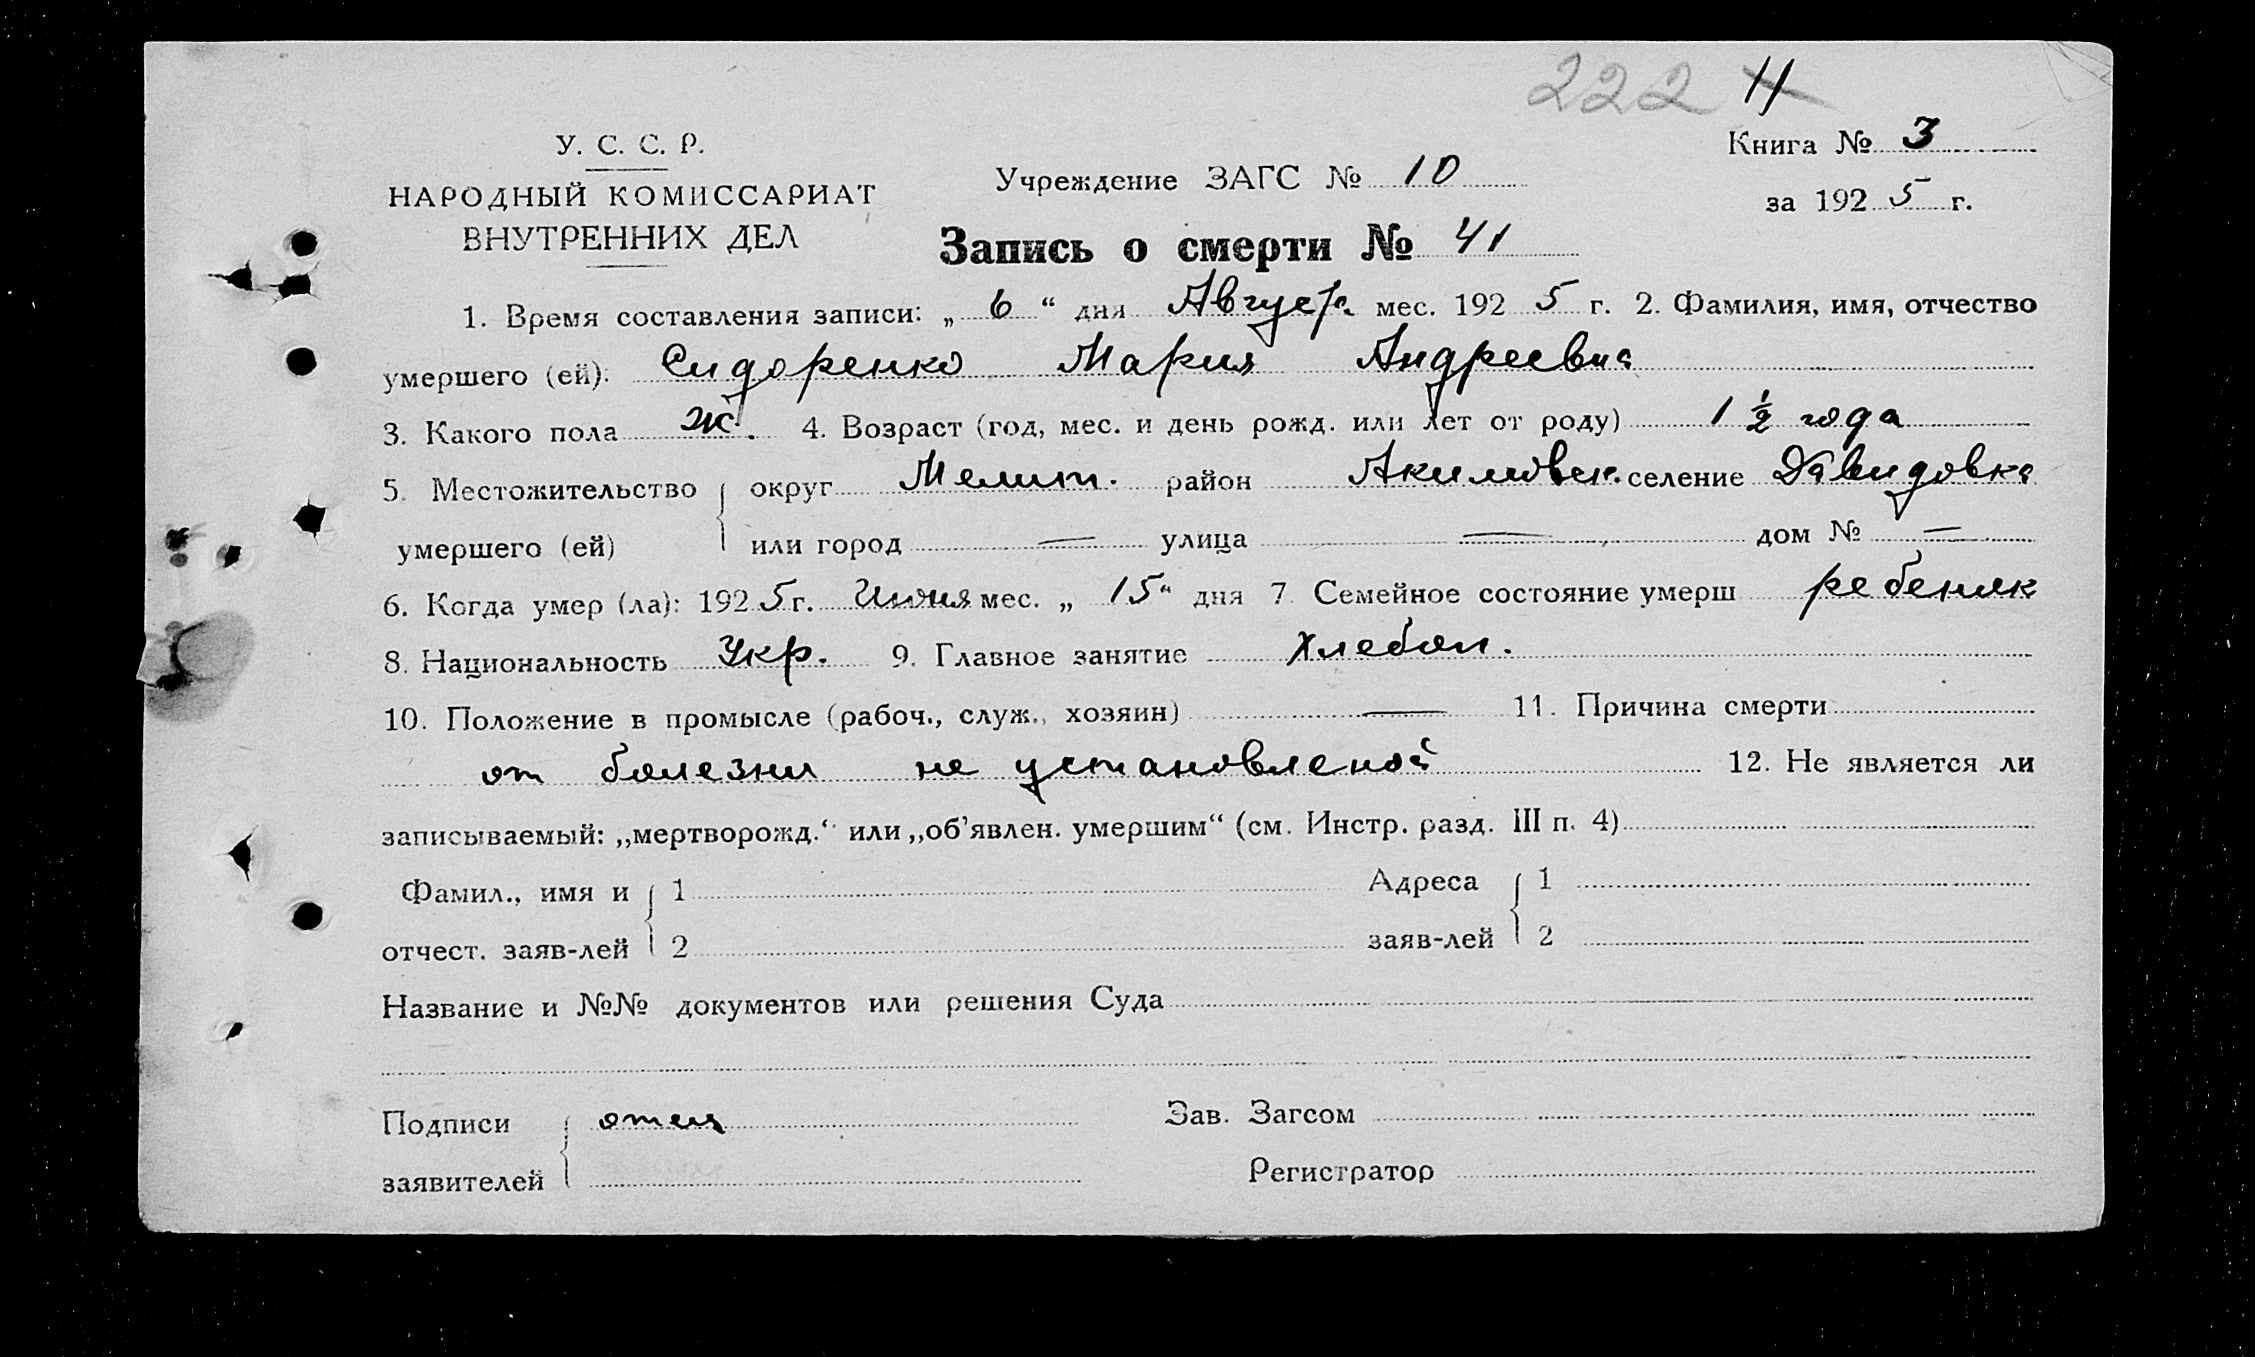 222 11
У. С. С. Р.
НАРОДНЫЙ КОМИССАРИАТ
ВНУТРЕННИХ ДЕЛ
Учреждение ЗАГС № 10
Книга № 3
за 1925 г.
Запись о смерти № 41
1. Время составления записи: „ 6 “ дня Август. мес. 1925 г. 2. Фамилия, имя, отчество
умершего (ей): Сидоренко Мария Андреевна
3. Какого пола ж. 4. Возраст (год, мес. и день рожд. или лет от роду) 1 1/2 года
5. Местожительство округ Мелит. район Акимовск. селение Давидовка
умершего (ей) или город — улица — дом № —
6. Когда умер (ла): 1925 г. Июня мес. „ 15 “ дня 7 Семейное состояние умерш ребенок
8. Национальность Укр. 9. Главное занятие Хлебоп.
10. Положение в промысле (рабоч., служ., хозяин) — 11. Причина смерти
от болезни не установленой 12. Не является ли
записываемый: „мертворожд.“ или „об’явлен. умершим“ (см. Инстр. разд. III п. 4)
Фамил., имя и 1 Адреса 1
отчест. заяв-лей 2 заяв-лей 2
Название и №№ документов или решения Суда
Подписи отец Зав. Загсом
заявителей Регистратор